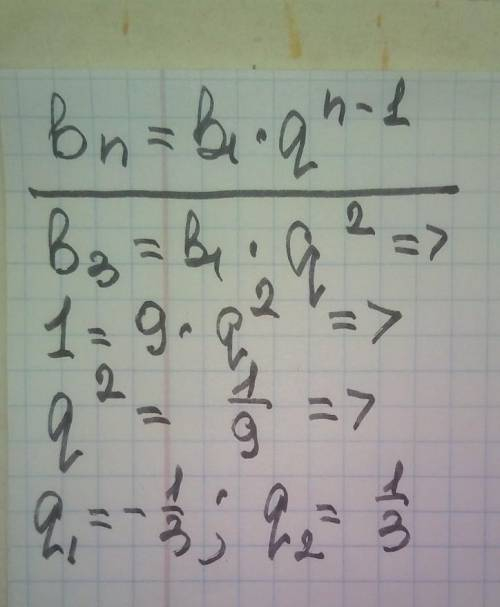 bₙ = b₁ · qⁿ⁻¹
b₃ = b₁ · q² =>
1 = 9 · q² =>
q² = 1/9 =>
q₁ = - 1/3 ; q₂ = 1/3